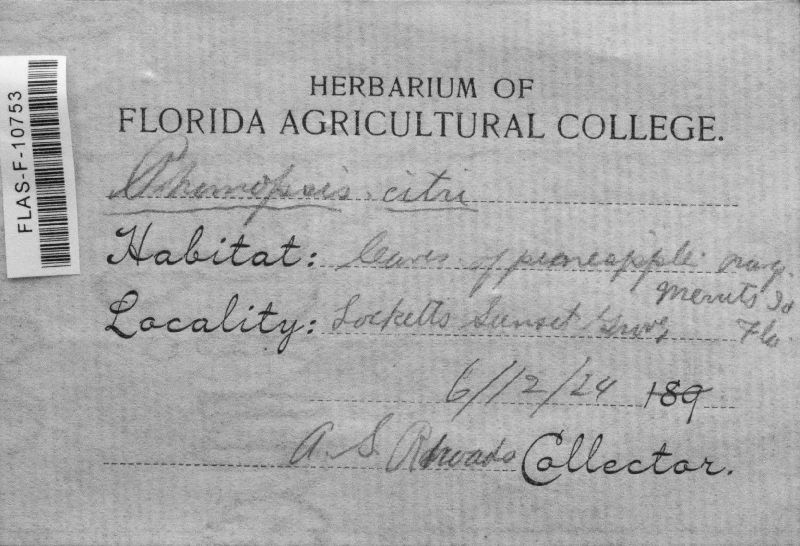 FLAS-F-10753
HERBARIUM OF
FLORIDA AGRICULTURAL COLLEGE.
Phomopsis citri
Habitat: leaves of pineapple orang.
Merrits Is
Locality: Locketts Sunset Grove, Fla.
6/12/24 189
A. S. Rhoads Collector.